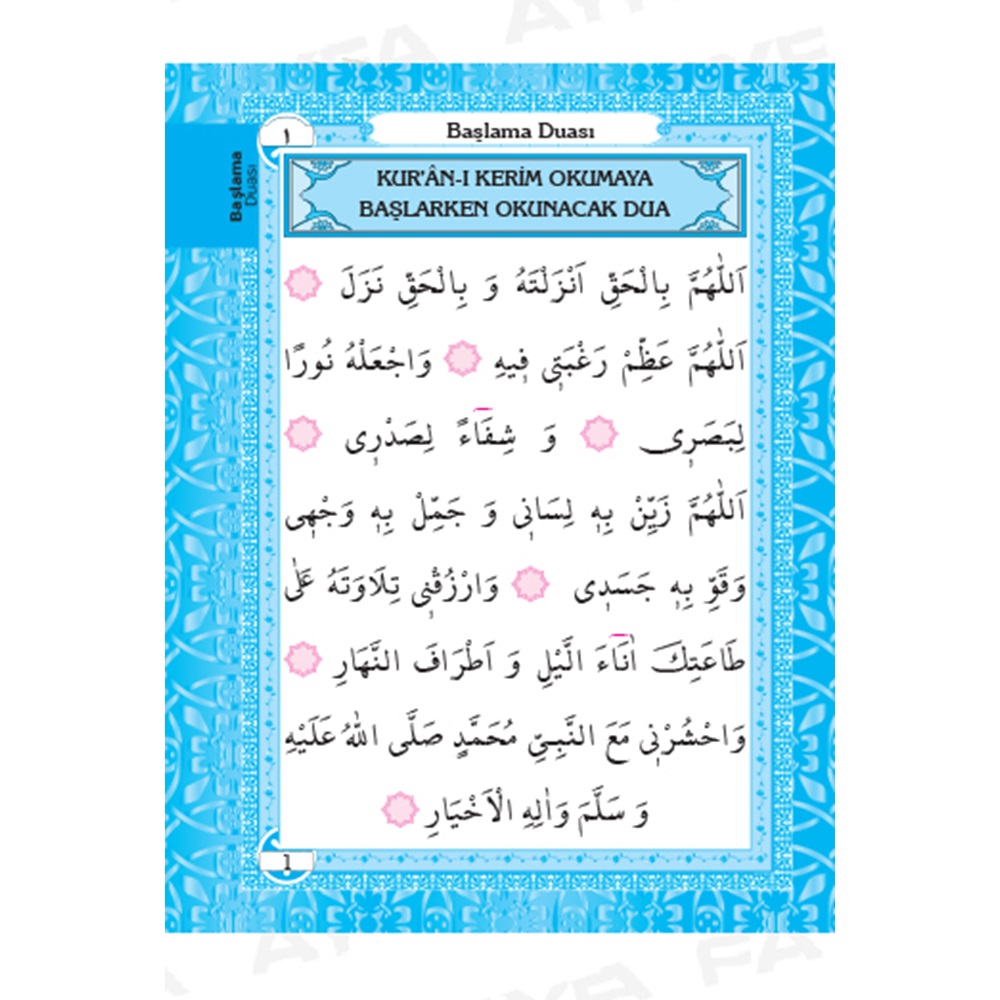 Başlama Duası
١
Başlama
Duası
KUR'ÂN-I KERİM OKUMAYA
BAŞLARKEN OKUNACAK DUA
اَللّٰهُمَّ بِالْحَقِّ اَنْزَلْتَهُ وَ بِالْحَقِّ نَزَلَ
اَللّٰهُمَّ عَظِّمْ رَغْبَتٖى فٖيهِ وَاجْعَلْهُ نُورًا
لِبَصَرٖى وَ شِفَٓاءً لِصَدْرٖى
اَللّٰهُمَّ زَيِّنْ بِهٖ لِسَانٖى وَ جَمِّلْ بِهٖ وَجْهٖى
وَقَوِّ بِهٖ جَسَدٖى وَارْزُقْنٖى تِلَاوَتَهُ عَلٰى
طَاعَتِكَ اٰنَٓاءَ الَّيْلِ وَ اَطْرَافَ النَّهَارِ
وَاحْشُرْنٖى مَعَ النَّبِىِّ مُحَمَّدٍ صَلَّى اللّٰهُ عَلَيْهِ
وَ سَلَّمَ وَاٰلِهِ الْاَخْيَارِ
1